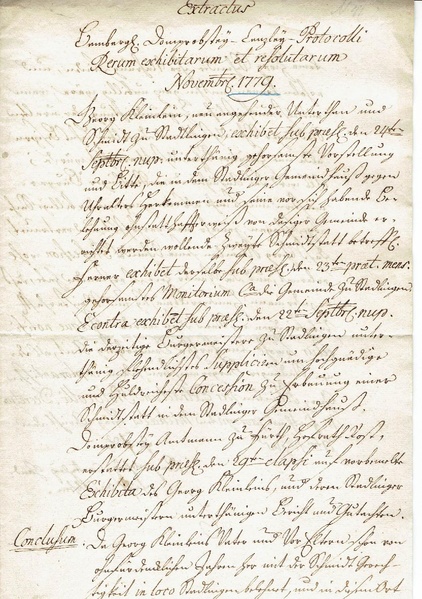 Extractus
Bambergl. Domprobstey-Canzley-Protocolli
Rerum exhibitarum et resolutarum
Novembr. 1779.
Georg Kleinlein, neu angehender Unterthan und
Schmidt zu Stadlingen, exhibet sub præs. den 24ten
Septbr. nup. unterthänig gehorsamste Vorstellung
und Bitte, die in dem Stadlinger Gemeindhauß gegen
Uhraltes Herkommen und seine vor sich habende Be-
lehnung von dasiger Gemeinde er-
richtet werden wollende zweyte Schmidtstatt betreffl.
Ferner exhibet derselbe sub præs. den 23ten præt. mens.
gehorsamstes Monitorium Ca die Gemeinde zu Stadlingen
Econtra exhibet sub præs. den 22ten Septbr. nup.
die derzeitige Burgermeistere zu Stadlingen unter-
thänig Supplicium um hochgnädige
und Concession zu Erbauung einer
Schmidtstatt in dem Stadlinger Gemeindhauß.
Domprobstey Amtmann zu Fürth, Hofrath
erstattet sub præs. den elapsi auf vorbemelte
Exhibita des Georg Kleinleins, und deren Stadlinger
Burgermeistern unterthänigen Bericht und Gutachten.
Conclusum: Da Georg Kleinleins Vater und Vor Eltern schon von
ohnfürdencklichen Jahren her mit der Schmidt Gerech-
tigkeit in loco Stadlingen belehnet, und in disem Ort